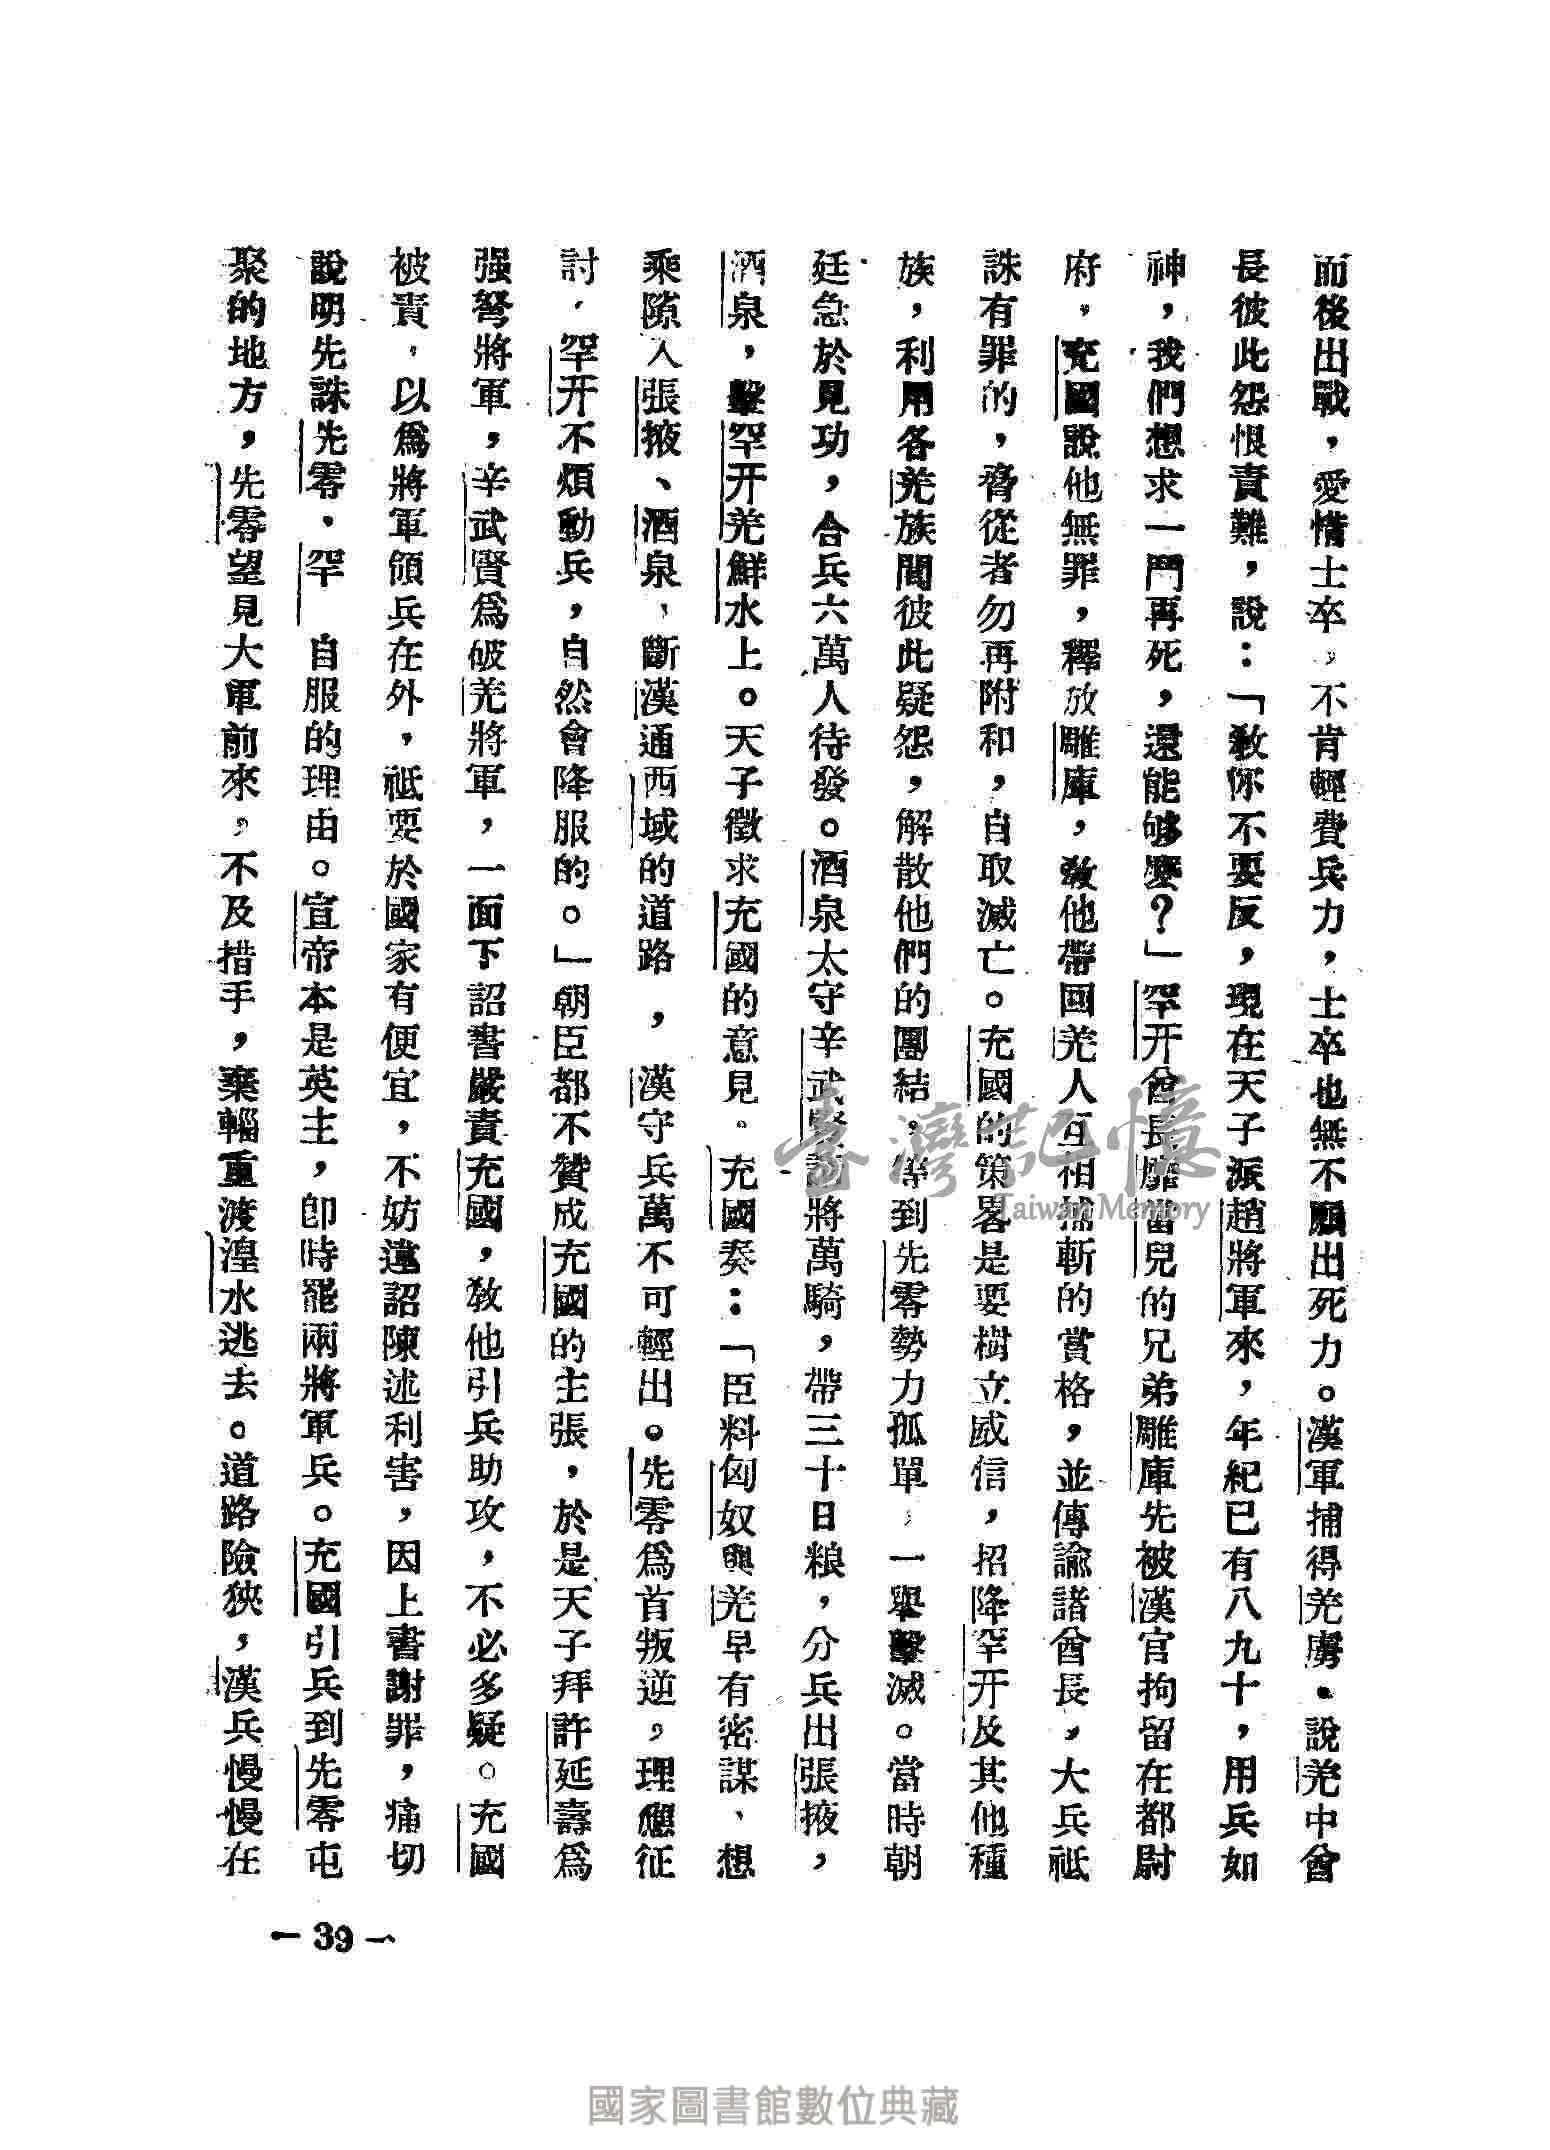 而後出戰，愛惜士卒，不肯輕費兵力，士卒也無不願出死力。漢軍捕得羌虜，說羌中酋
長彼此怨恨責難，說：「教你不要反，現在天子派趙將軍來，年紀已有八九十，用兵如
神，我們想求一鬥再死，還能够麼？」罕开酋長靡當兒的兄弟雕庫先被漢官拘留在都尉
府，充國說他無罪，釋放雕庫，教他帶回羌人互相捕斬的賞格，並傳諭諸酋長，大兵祗
誅有罪的，脅從者勿再附和，自取滅亡。充國的策畧是要樹立威信，招降罕开及其他種
族，利用各羌族間彼此疑怨，解散他們的團結，等到先零勢力孤單，一舉擊滅。當時朝
廷急於見功，合兵六萬人待發。酒泉太守辛武賢請將萬騎，帶三十日粮，分兵出張掖，
酒泉，擊罕开羌鮮水上。天子徵求充國的意見。充國奏：「臣料匈奴與羌早有密謀、想
乘隙入張掖、酒泉、斷漢通西域的道路，漢守兵萬不可輕出。先零爲首叛逆，理應征
討，罕开不煩動兵，自然會降服的。」朝臣都不贊成充國的主張，於是天子拜許延壽爲
强弩將軍，辛武賢爲破羌將軍，一面下詔書嚴責充國，教他引兵助攻，不必多疑。充國
被責，以爲將軍領兵在外，祗要於國家有便宜，不妨違詔陳述利害，因上書謝罪，痛切
說明先誅先零、罕　自服的理由。宣帝本是英主，卽時罷兩將軍兵。充國引兵到先零屯
聚的地方，先零望見大軍前來，不及措手，棄輜重渡湟水逃去。道路險狹，漢兵慢慢在
－39－
臺灣記憶
Taiwan Memory
國家圖書館數位典藏